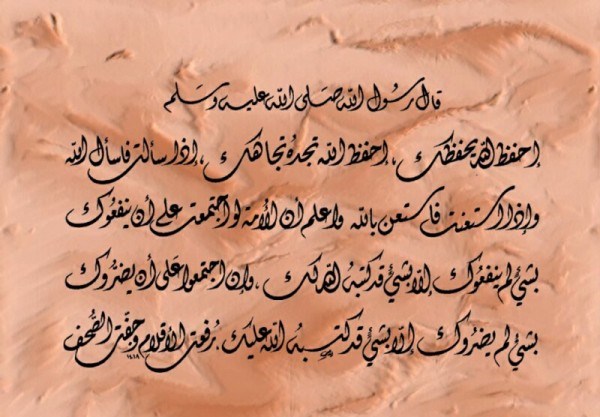 قال رسول الله صلى الله عليه وسلم
إحفظ الله يحفظك ، إحفظ الله تجده تجاهك ، إذا سألت فاسأل الله
وإذا استعنت فاستعن بالله واعلم أن الأمة لو اجتمعت على أن ينفعوك
بشيء لم ينفعوك إلا بشيء قد كتبه الله لك ، وإن اجتمعوا على أن يضروك
بشيء لم يضروك إلا بشيء قد كتبه الله عليك . رفعت الأقلام وجفت الصحف